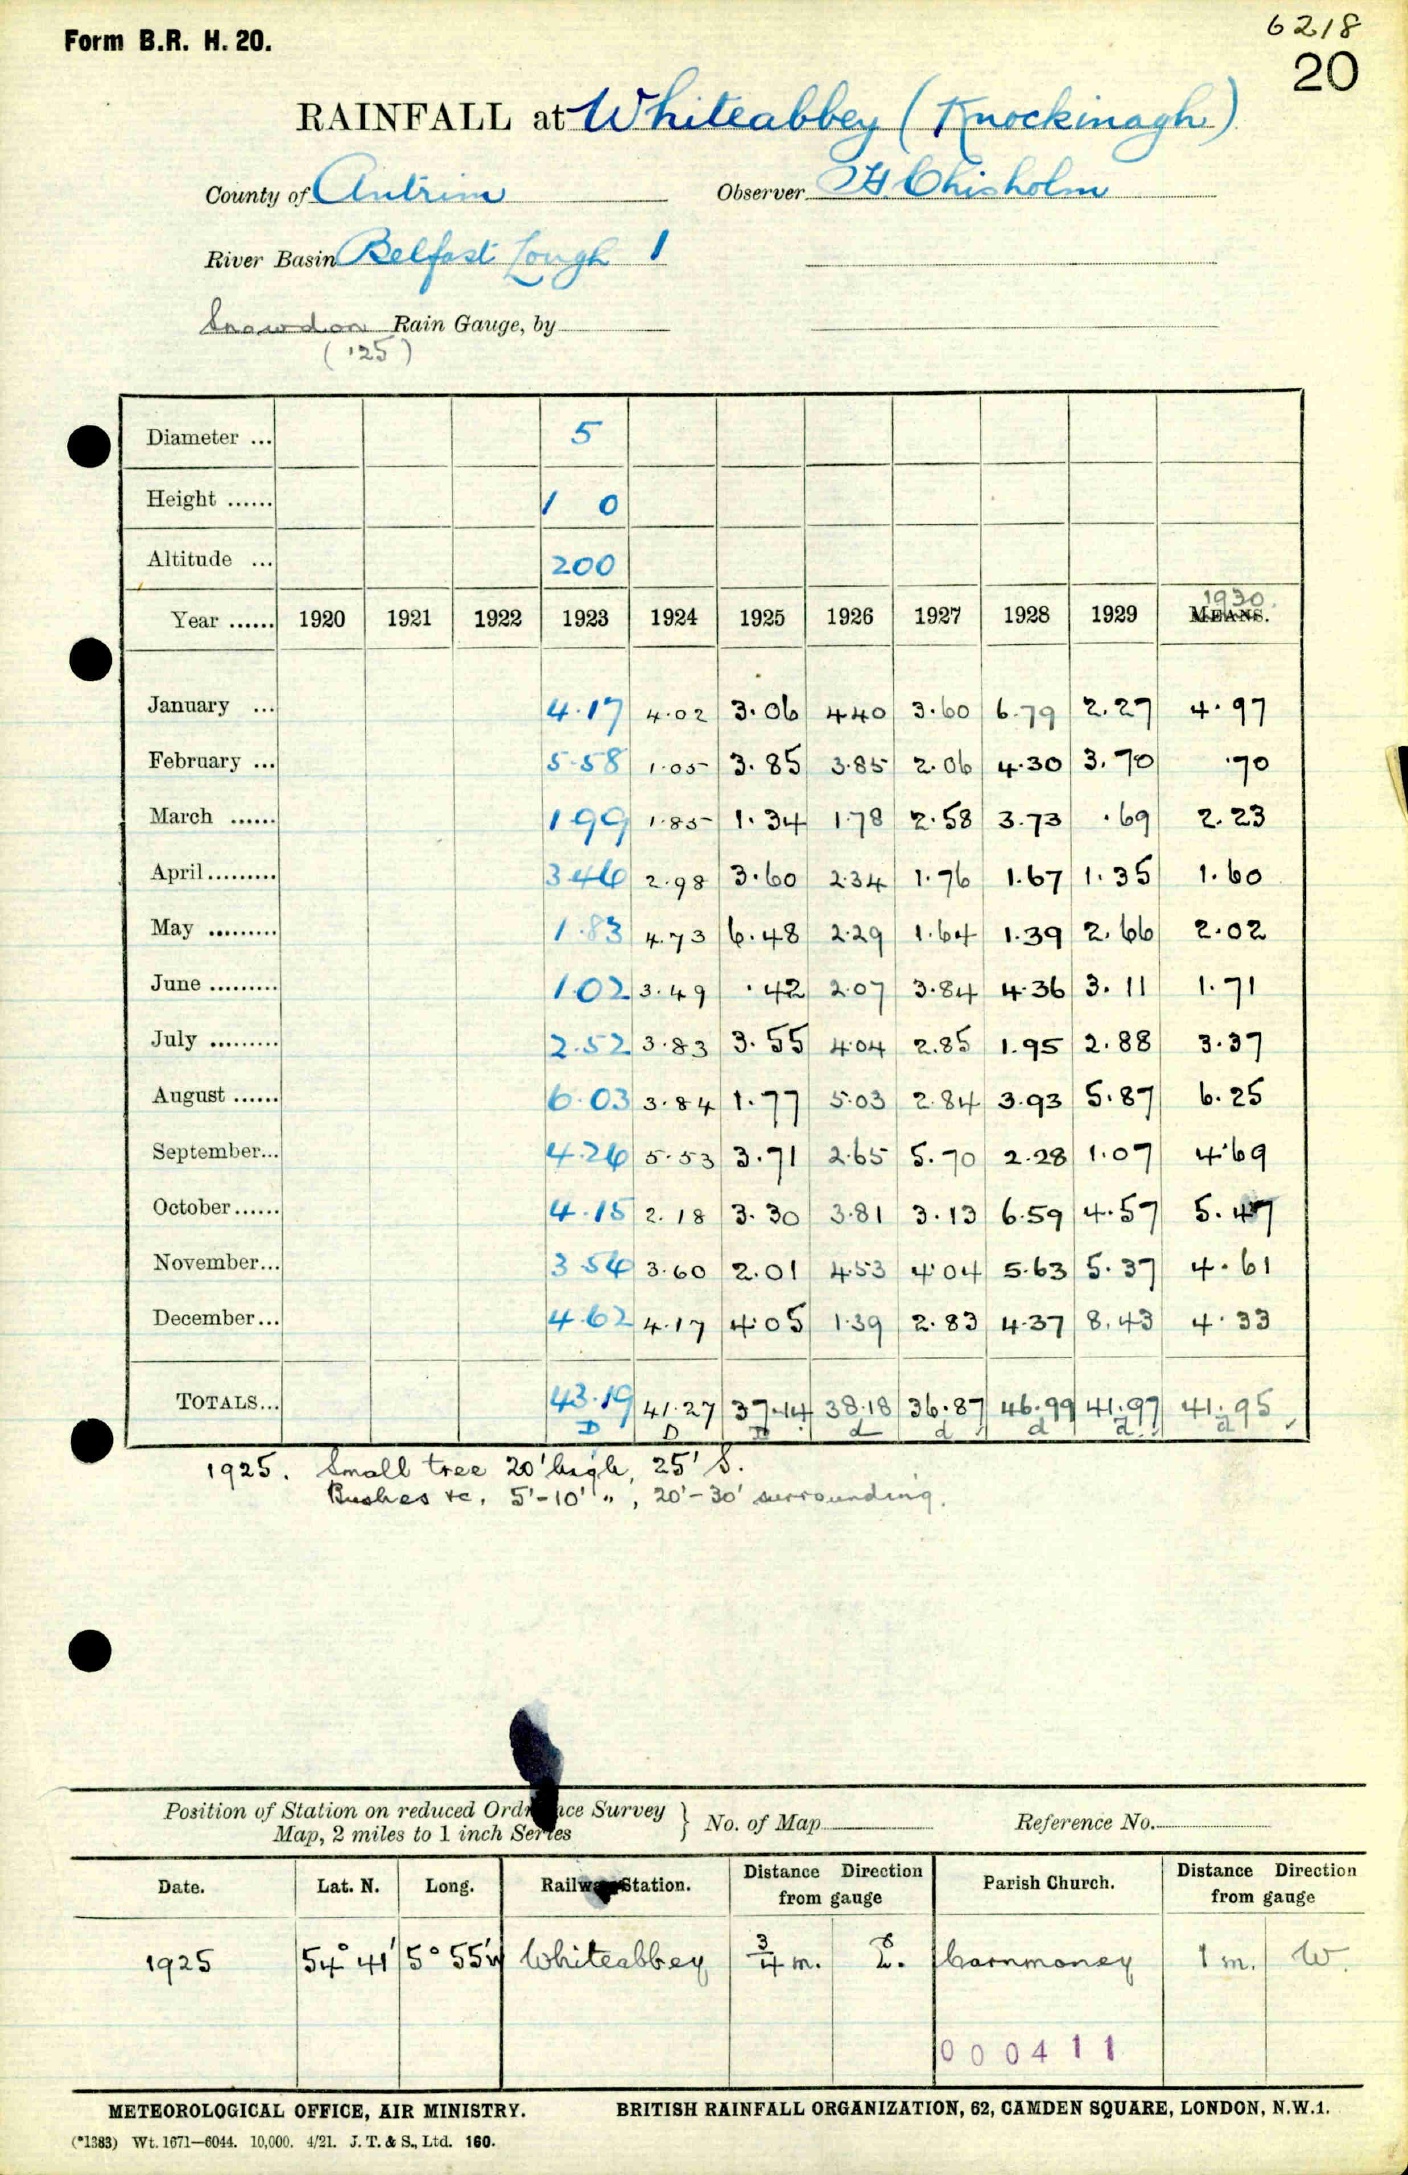 Form B.R. H. 20.
6218
20
RAINFALL at Whiteabbey (Knockinagh)
County of Antrim Observer H. Chisholm
River Basin Belfast Lough 1
Snowdon Rain Gauge, by
('25)
Diameter ... 5
Height ...... 1 0
Altitude ... 200
1930.
Year ...... 1920 1921 1922 1923 1924 1925 1926 1927 1928 1929 MEANS.
January ... 4.17 4.02 3.06 4.40 3.60 6.79 2.27 4.97
February ... 5.58 1.05 3.85 3.85 2.06 4.30 3.70 .70
March ...... 1.99 1.85 1.34 1.78 2.58 3.73 .69 2.23
April......... 3.46 2.98 3.60 2.34 1.76 1.67 1.35 1.60
May ......... 1.83 4.73 6.48 2.29 1.64 1.39 2.66 2.02
June ......... 1.02 3.49 .42 2.07 3.84 4.36 3.11 1.71
July ......... 2.52 3.83 3.55 4.04 2.85 1.95 2.88 3.37
August ...... 6.03 3.84 1.77 5.03 2.84 3.93 5.87 6.25
September... 4.26 5.53 3.71 2.65 5.70 2.28 1.07 4.69
October...... 4.15 2.18 3.30 3.81 3.13 6.59 4.57 5.47
November... 3.56 3.60 2.01 4.53 4.04 5.63 5.37 4.61
December... 4.62 4.17 4.05 1.39 2.83 4.37 8.43 4.33
TOTALS... 43.19 41.27 37.14 38.18 36.87 46.99 41.97 41.95
D D D d d d d d
1925. Small tree 20' high, 25' S.
Bushes &c. 5'-10' ", 20'-30' surrounding.
Position of Station on reduced Ordnance Survey
Map, 2 miles to 1 inch Series } No. of Map Reference No.
Date. Lat. N. Long. Railway Station. Distance Direction from gauge Parish Church. Distance Direction from gauge
1925 54° 41' 5° 55'W Whiteabbey 3/4 m. E. Carnmoney 1 m. W.
000411
METEOROLOGICAL OFFICE, AIR MINISTRY. BRITISH RAINFALL ORGANIZATION, 62, CAMDEN SQUARE, LONDON, N.W.1.
(*1383) Wt. 1671—6044. 10,000. 4/21. J. T. & S., Ltd. 160.